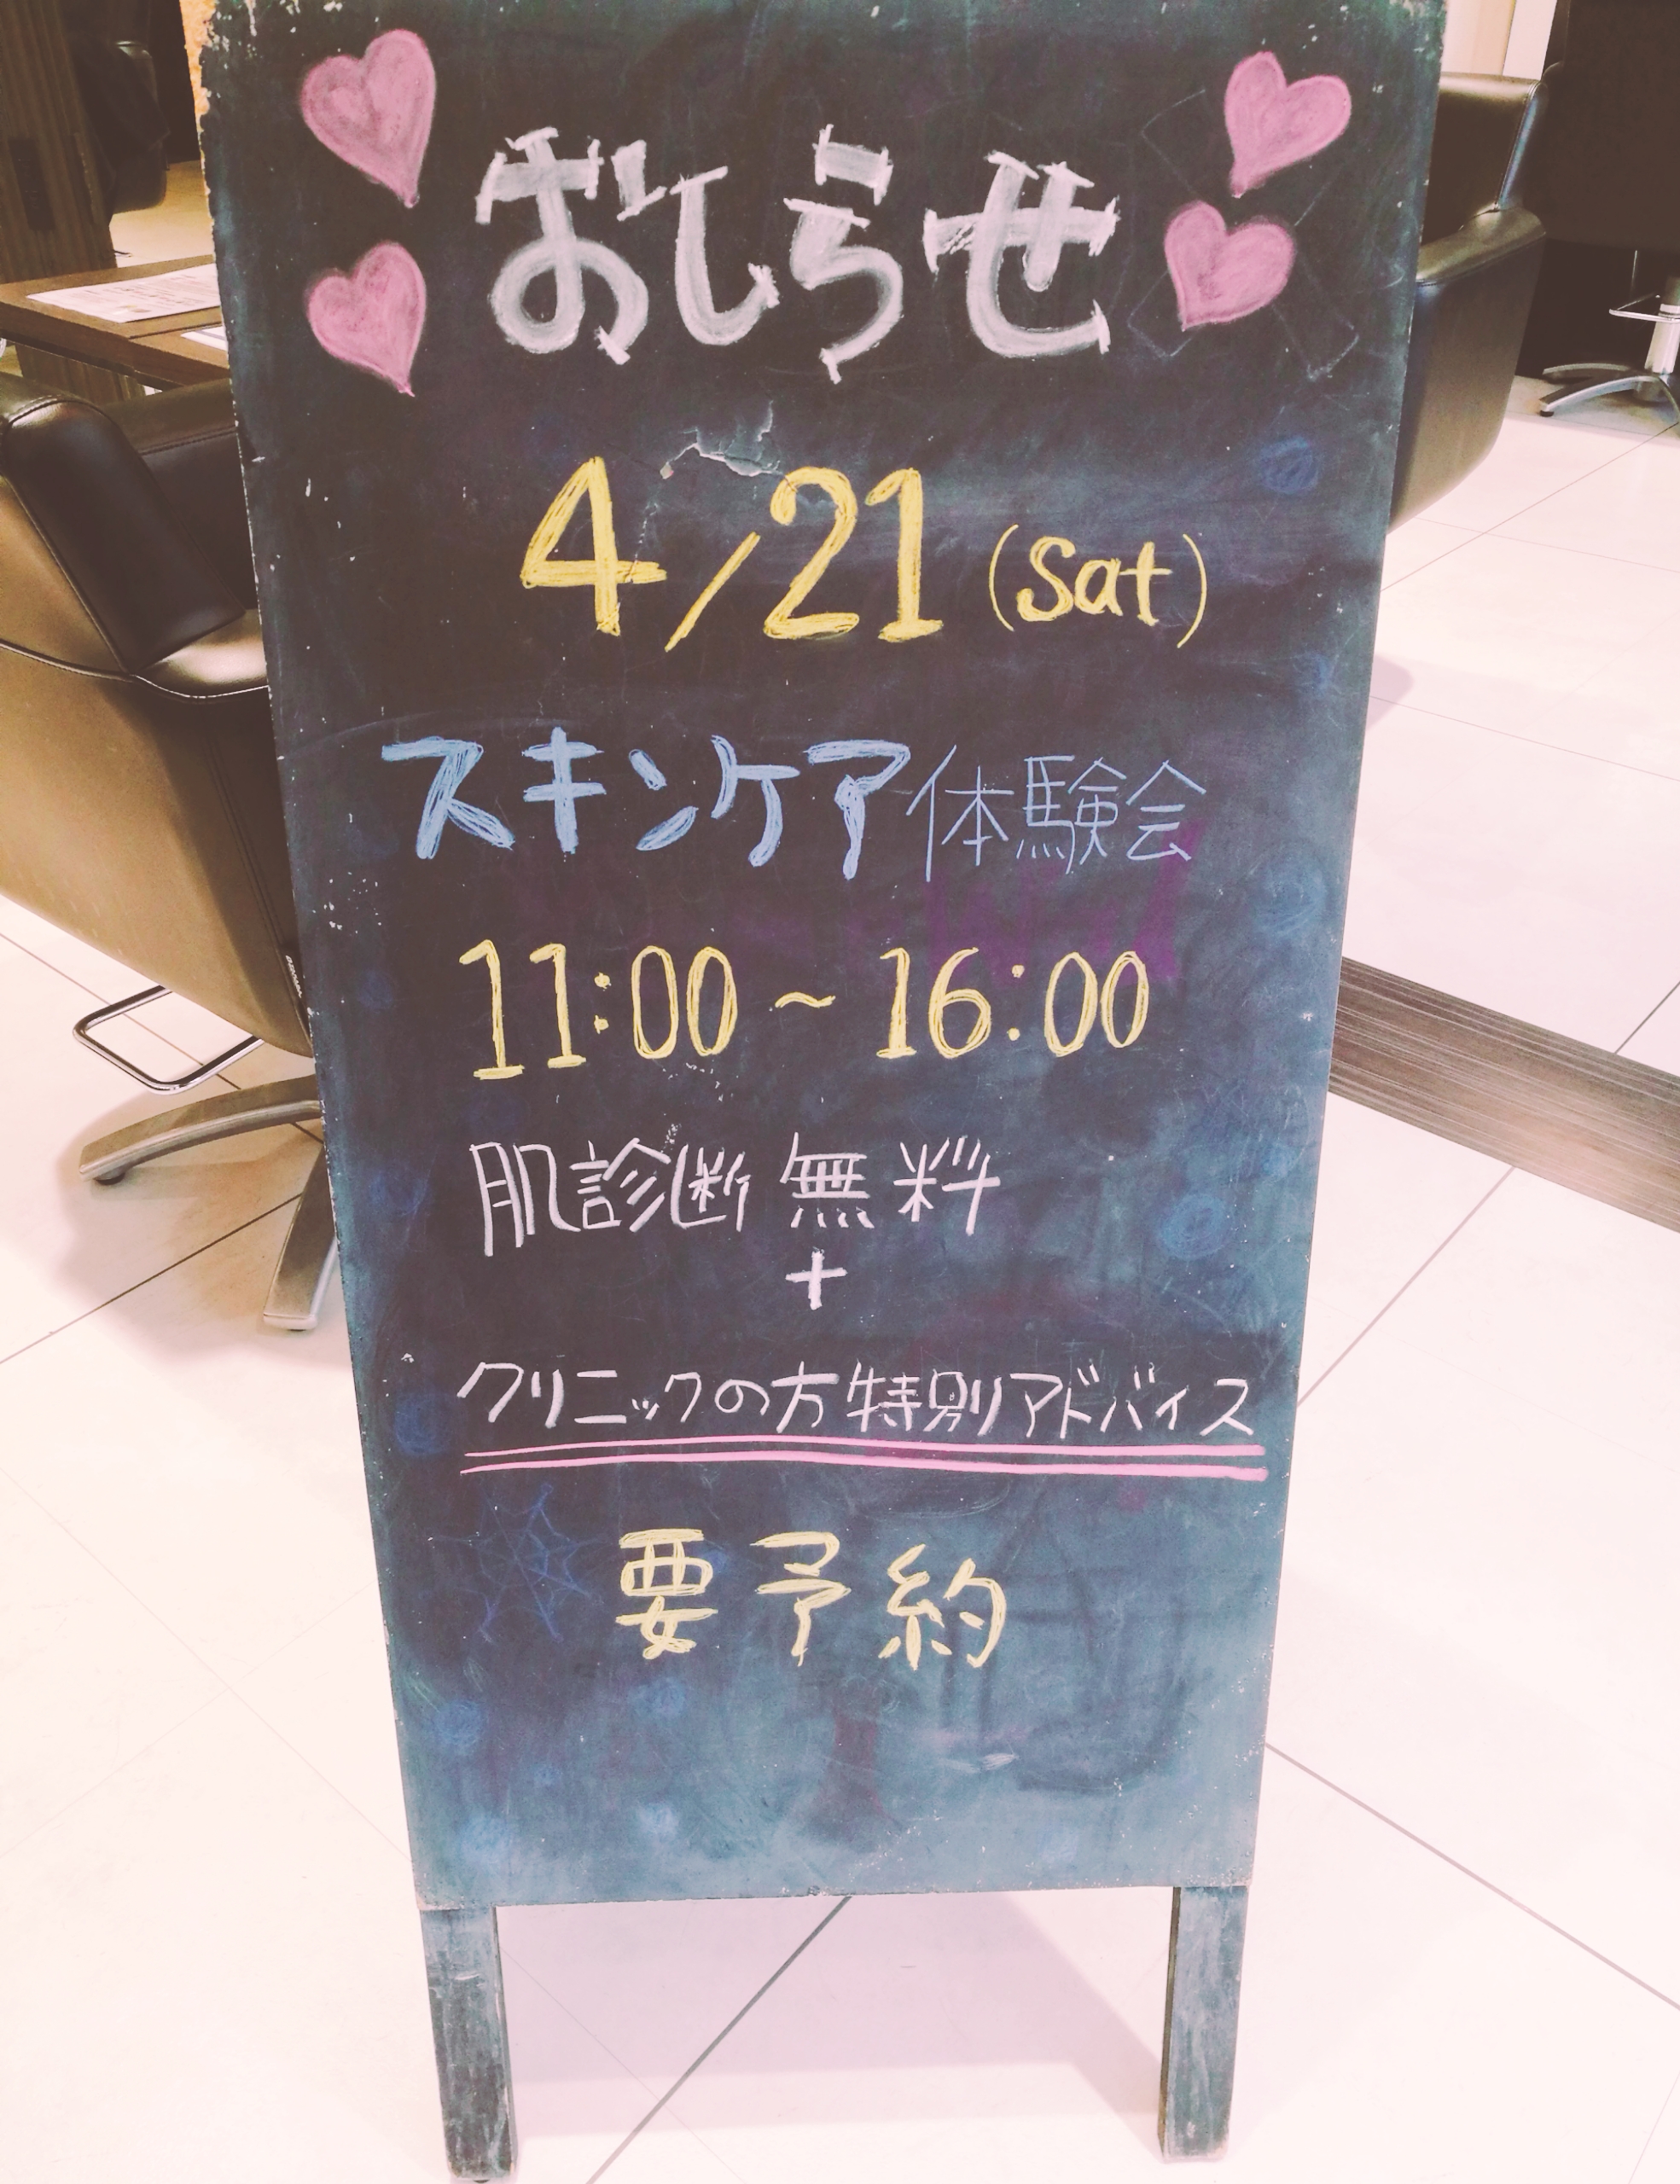 おしらせ
4/21(Sat)
スキンケア体験会
11:00~16:00
肌診断 無料
+
クリニックの方特別アドバイス
要予約